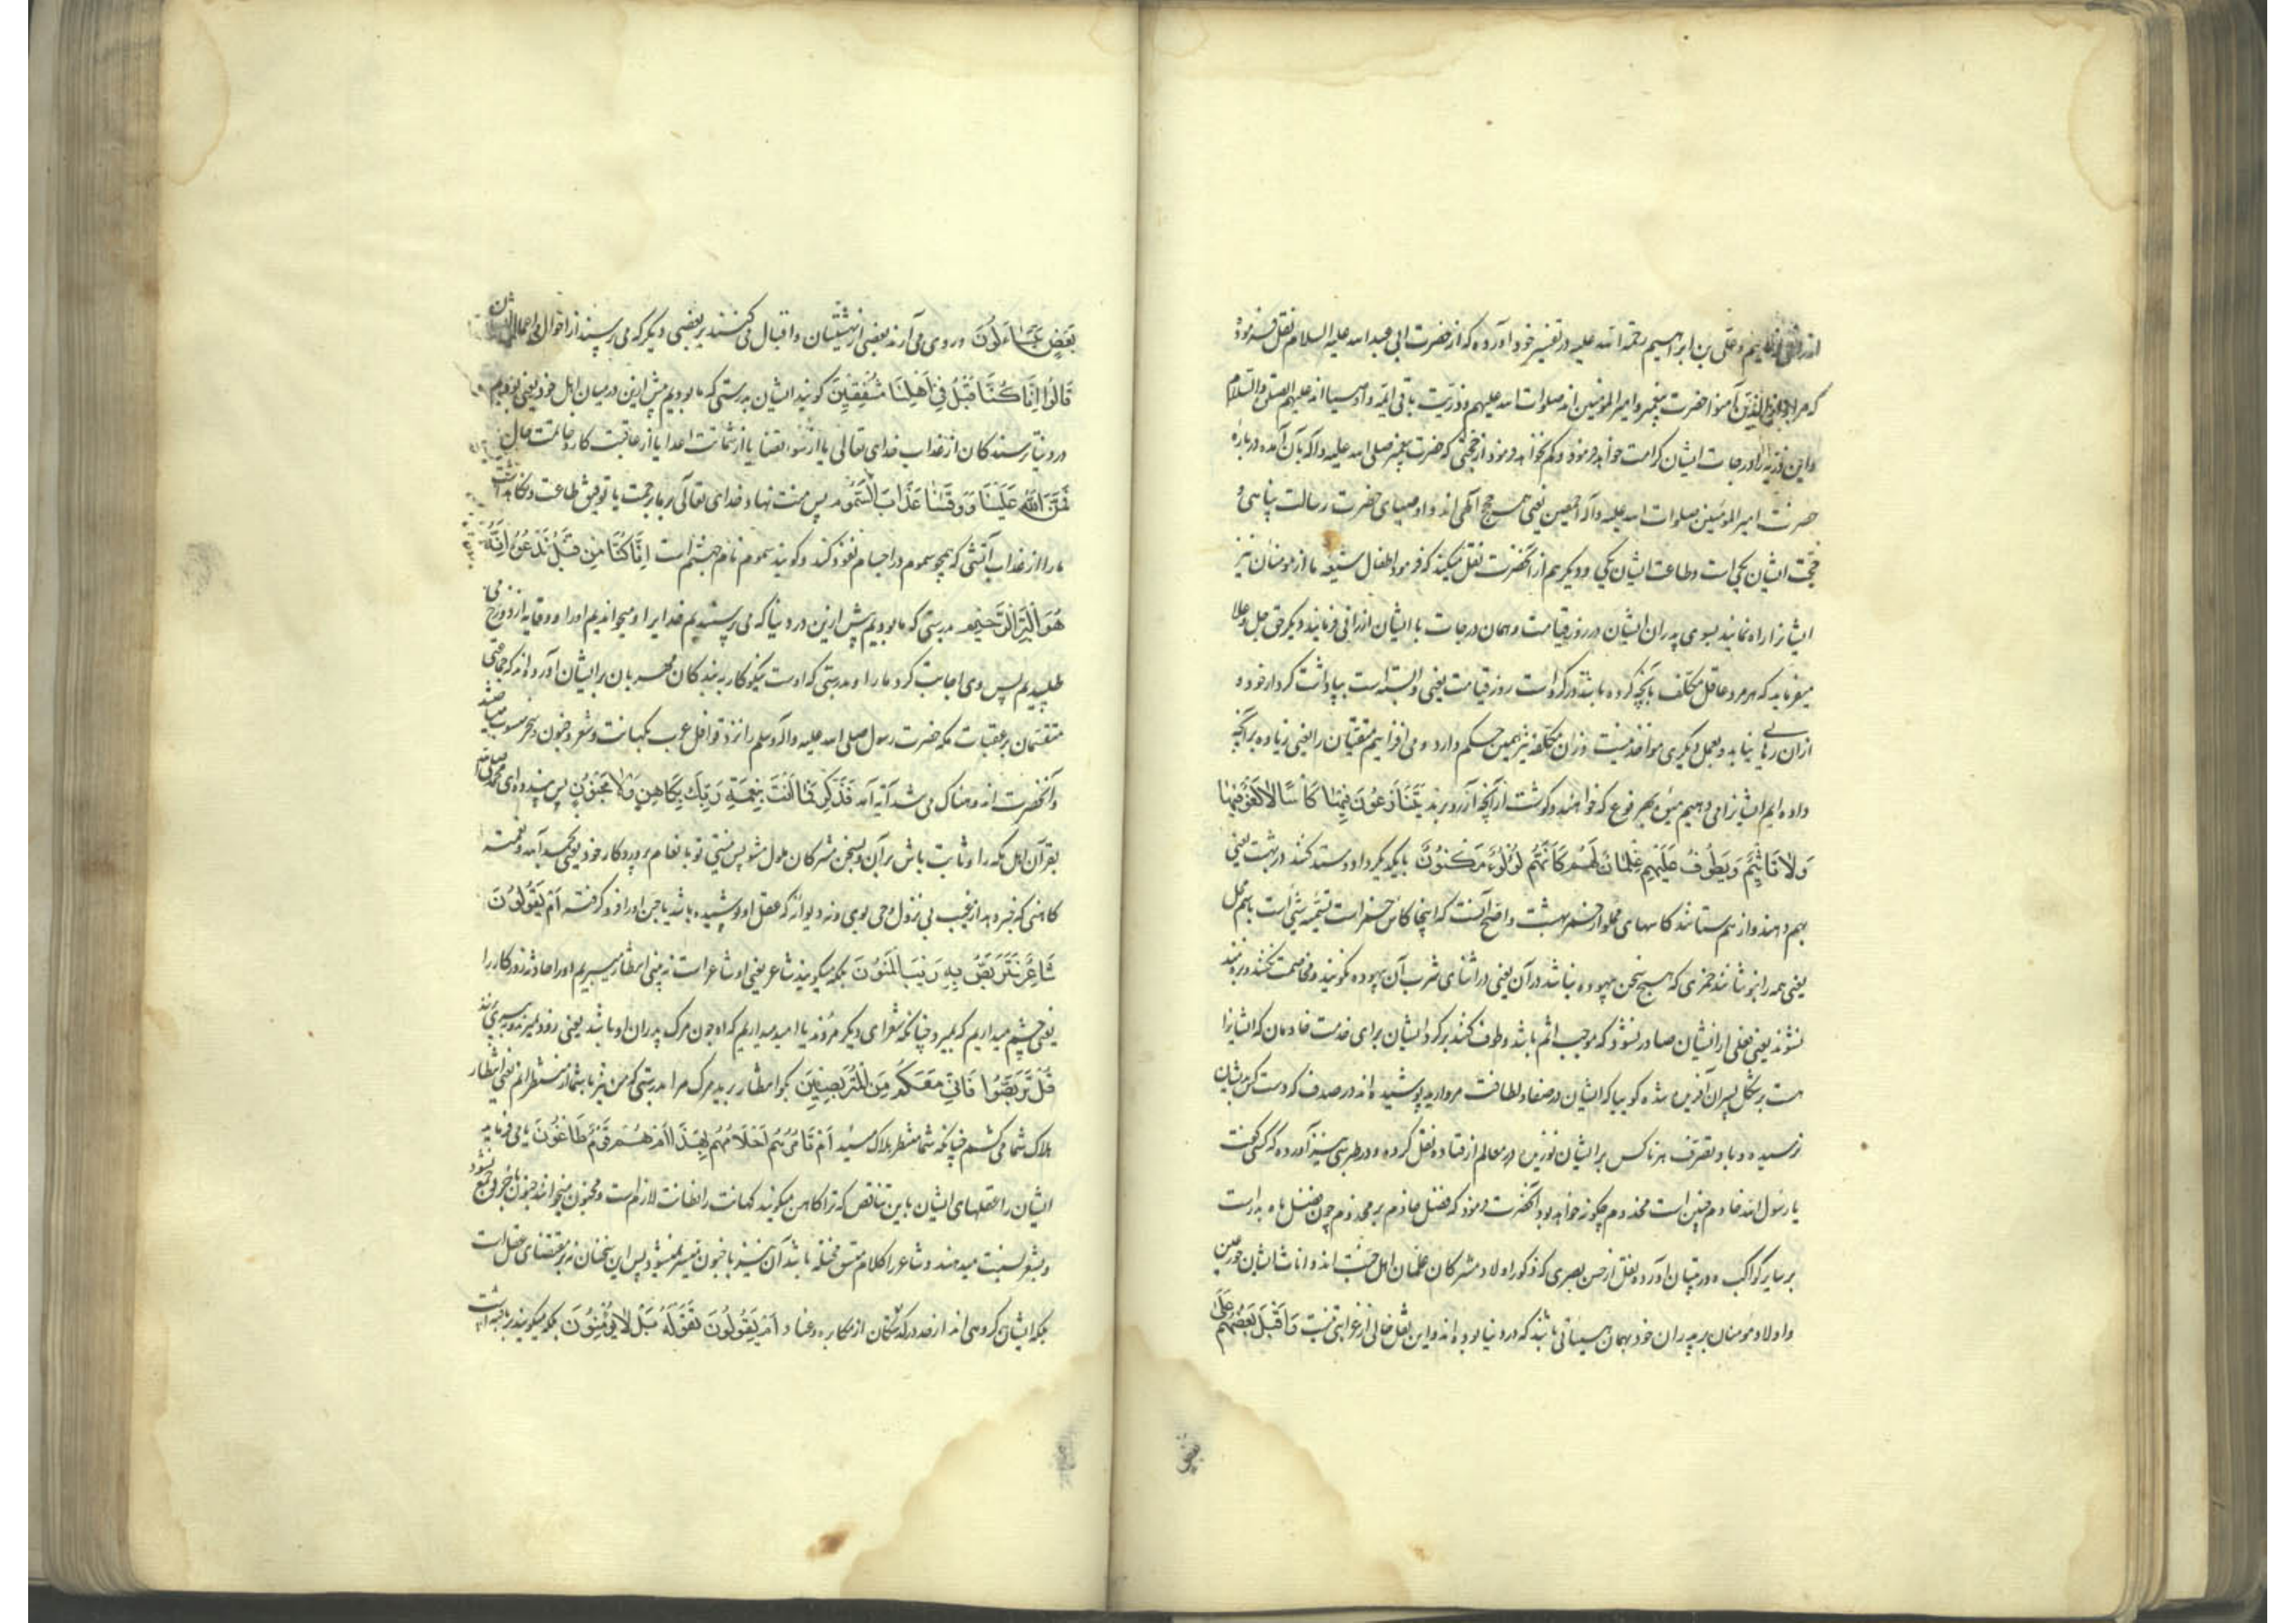 و علی بن ابراهیم رحمة الله علیه در تفسیر خود آورده که از حضرت ابی عبد الله علیه السلام نقل فرموده
که مراد از الذین آمنوا حضرت پیغمبر و امیر المؤمنین اند صلوات الله علیهم و ذریت باقی ائمه و اوصیا اند علیهم الصلوة والسلام
و این ذریه را در درجات ایشان کرامت خواهد فرمود و کم نخواهد فرمود از حجتی که حضرت پیغمبر صلی الله علیه و اله بآن آمده درباره
حضرت امیر المومنین صلوات الله علیه و آله اجمعین یعنی همه حجج الهی اند و اوصیای حضرت رسالت پناهی و
حجت ایشان یکی است و طاعت ایشان یکی و دیگر هم از آنحضرت نقل میکند که فرمود اطفال شیعه ما از مومنان نیز
ایشانرا راه نمایند بسوی پدران ایشان در روز قیامت و همان درجات با ایشان ارزانی فرمایند دیگر حق جل و علا
میفرماید که هر مرد عاقل مکلف بآنچه کرده باشد در گرو است روز قیامت یعنی وابسته است بپاداشت کردار خود و
ازان رهایی نیابد و بعمل دیگری مواخذ نیست و زنان مکلفه نیز همین حکم دارد و می افزاییم متقیان را یعنی زیاده بر آنچه
داده ایم ایشانرا می دهیم میوه بهر نوع که خواهند و گوشت از آنچه آرزو برند يَتَنَازَعُونَ فِيهَا كَأْسًا لَا لَغْوٌ فِيهَا
وَلَا تَأْثِيمٌ وَيَطُوفُ عَلَيْهِمْ غِلْمَانٌ لَهُمْ كَأَنَّهُمْ لُؤْلُؤٌ مَكْنُونٌ با یکدیگر داد و ستد کنند در بهشت یعنی
بهم دهند و از هم ستانند کاسهای مملو از خمر بهشت و اصح آنست که اینجا کاس خمر است تسمیه شیء است باسم محل
یعنی همه را بنوشانند خمری که هیچ سخن بیهوده نباشد در آن یعنی در اثنای شرب آن بیهوده نگویند و مخاصمت نکنند و بزه مند
نشوند یعنی فعلی از ایشان صادر نشود که موجب اثم باشد و طوف کنند برگرد ایشان برای خدمت خادمان که ایشانرا
است بر شکل پسران آفریده شده گوییا که ایشان در صفا و لطافت مروارید پوشیده اند در صدف که دست کس بدیشان
نرسیده و باد تصرف هر ناکس بر ایشان نوزیده در معالم از قتاده نقل کرده و در طبرسی نیز آورده که کسی گفت
یا رسول الله خادم چنین است مخدوم چگونه خواهد بود آنحضرت فرمود که فضل خادم بر مخدوم چون فضل ماه بدر است
بر سایر کواکب و در تبیان آورده نقل از حسن بصری که ذکور اولاد مشرکان غلمان اهل جنت اند و اناث ایشان حور عین
و اولاد مومنان بر پدران خود بهمان هیئاتی باشند که در دنیا بوده اند و این نقل خالی از غرابتی نیست وَأَقْبَلَ بَعْضُهُمْ عَلَى
بَعْضٍ يَتَسَاءَلُونَ و روی می آرند بعضی از بهشتیان و اقبال می کنند بر بعضی دیگر که می پرسند از احوال و اعمال ایشان
قَالُوا إِنَّا كُنَّا قَبْلُ فِي أَهْلِنَا مُشْفِقِينَ گویند ایشان بدرستی که ما بودیم پیش ازین در میان اهل خود یعنی بودیم
در دنیا ترسندکان از عذاب خدای تعالی یا از سوء قضا یا از شماتت اعدا یا از عاقبت کار و خاتمت حال
فَمَنَّ اللَّهُ عَلَيْنَا وَوَقَانَا عَذَابَ السَّمُومِ پس منت نهاد خدای تعالی بر ما برحمت یا توفیق طاعت و نگاهداشت
ما را از عذاب آتشی که همچو سموم در اجسام نفوذ کند و گویند سموم نام جهنم است إِنَّا كُنَّا مِنْ قَبْلُ نَدْعُوهُ إِنَّهُ
هُوَ الْبَرُّ الرَّحِيمُ بدرستی که ما بودیم پیش ازین در دنیا که می پرستیدیم خدایرا و میخواندیم او را و وقایه از دوزخ می
طلبیدیم پس وی اجابت کرد ما را و بدرستی که اوست نیکوکار به بندکان مهربان بر ایشان آورده اند که جماعتی
متقسمان بر عقبات مکه حضرت رسول صلی الله علیه و اله و سلم را نزد قوافل عرب بکهانت و شعر و جنون و سحر منسوب می ساختند
و آنحضرت اندوهناک می شد آیه آمد فَذَكِّرْ فَمَا أَنْتَ بِنِعْمَةِ رَبِّكَ بِكَاهِنٍ وَلَا مَجْنُونٍ پس پند ده ای محمد
بقرآن اهل مکه را و ثابت باش بر آن و بسخن مشرکان ملول مشو پس نیستی تو بانعام پروردکار خود یعنی بحمد الله و نعمته
کاهنی که خبر دهد از غیب بی نزول وحی بوی و نه دیوانه که عقل او پوشیده باشد یا جن او را فرو گرفته أَمْ يَقُولُونَ
شَاعِرٌ نَتَرَبَّصُ بِهِ رَيْبَ الْمَنُونِ بلکه میگویند شاعر یعنی او شاعر است نه نبی انتظار میبریم او را حادثه روزکار را
یعنی چشم میداریم که بمیرد چنانکه شعرای دیگر مردند یا امید میداریم که او چون مرک پدران او باشد یعنی زود بمیرد و به پیری
قُلْ تَرَبَّصُوا فَإِنِّي مَعَكُمْ مِنَ الْمُتَرَبِّصِينَ بکو انتظار برید مرک مرا بدرستی که من نیز با شما از منتظرانم یعنی انتظار
هلاک شما می کشم چنانکه شما منتظر هلاک منید أَمْ تَأْمُرُهُمْ أَحْلَامُهُمْ بِهَذَا أَمْ هُمْ قَوْمٌ طَاغُونَ یا می فرماید
ایشان را عقلهای ایشان باین تناقض که ترا کاهن میگویند کهانت را فطانت لازم است و مجنون میخوانند جنون با خبر دهی جمع نشود
و بشعر نسبت میدهند و شاعر را کلام متسق مخیله باشد آن نیز با جنون میسر نمیشود پس این سخنان نه بر مقتضای عقل است
بلکه ایشان گروهی اند از حد درکذشتگان از مکابره و عناد أَمْ يَقُولُونَ تَقَوَّلَهُ بَلْ لَا يُؤْمِنُونَ بلکه میگویند بربافته است